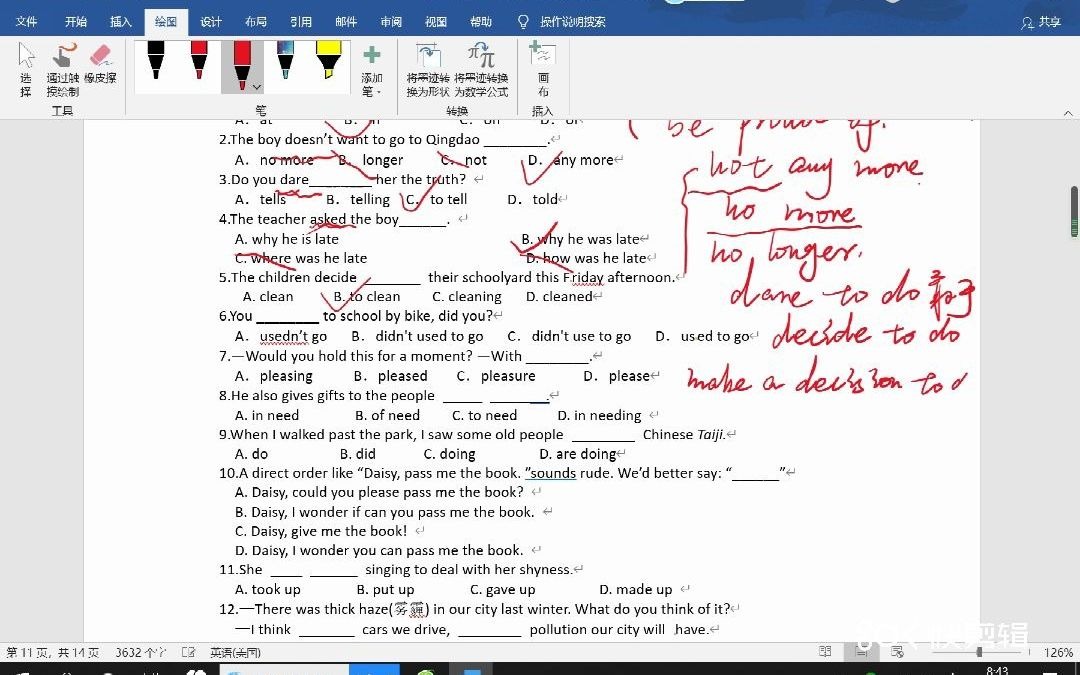 文件 开始 插入 绘图 设计 布局 引用 邮件 审阅 视图 帮助 操作说明搜索 共享
选择 通过触摸绘制 橡皮擦 添加笔 将墨迹转换为形状 将墨迹转换为数学公式 画布
工具 笔 转换 插入
A. at B. in C. on D. of
be proud of.
2.The boy doesn't want to go to Qingdao ________.
A. no more B. longer C. not D. any more
not any more
3.Do you dare________ her the truth?
A. tells B. telling C. to tell D. told
no more
4.The teacher asked the boy______.
A. why he is late B. why he was late
C. where was he late D. how was he late
no longer.
5.The children decide ________ their schoolyard this Friday afternoon.
A. clean B. to clean C. cleaning D. cleaned
dare to do 敢于
6.You ________ to school by bike, did you?
A. usedn't go B. didn't used to go C. didn't use to go D. used to go
decide to do
7.—Would you hold this for a moment? —With ________.
A. pleasing B. pleased C. pleasure D. please
make a decision to d
8.He also gives gifts to the people _____ _______.
A. in need B. of need C. to need D. in needing
9.When I walked past the park, I saw some old people ________ Chinese Taiji.
A. do B. did C. doing D. are doing
10.A direct order like “Daisy, pass me the book. ”sounds rude. We'd better say: “______”
A. Daisy, could you please pass me the book?
B. Daisy, I wonder if can you pass me the book.
C. Daisy, give me the book!
D. Daisy, I wonder you can pass me the book.
11.She ____ ______ singing to deal with her shyness.
A. took up B. put up C. gave up D. made up
12.—There was thick haze(雾霾) in our city last winter. What do you think of it?
—I think _______ cars we drive, ________ pollution our city will have.
快剪辑
第 11 页，共 14 页 3632 个字 英语(美国) 126%
8:43